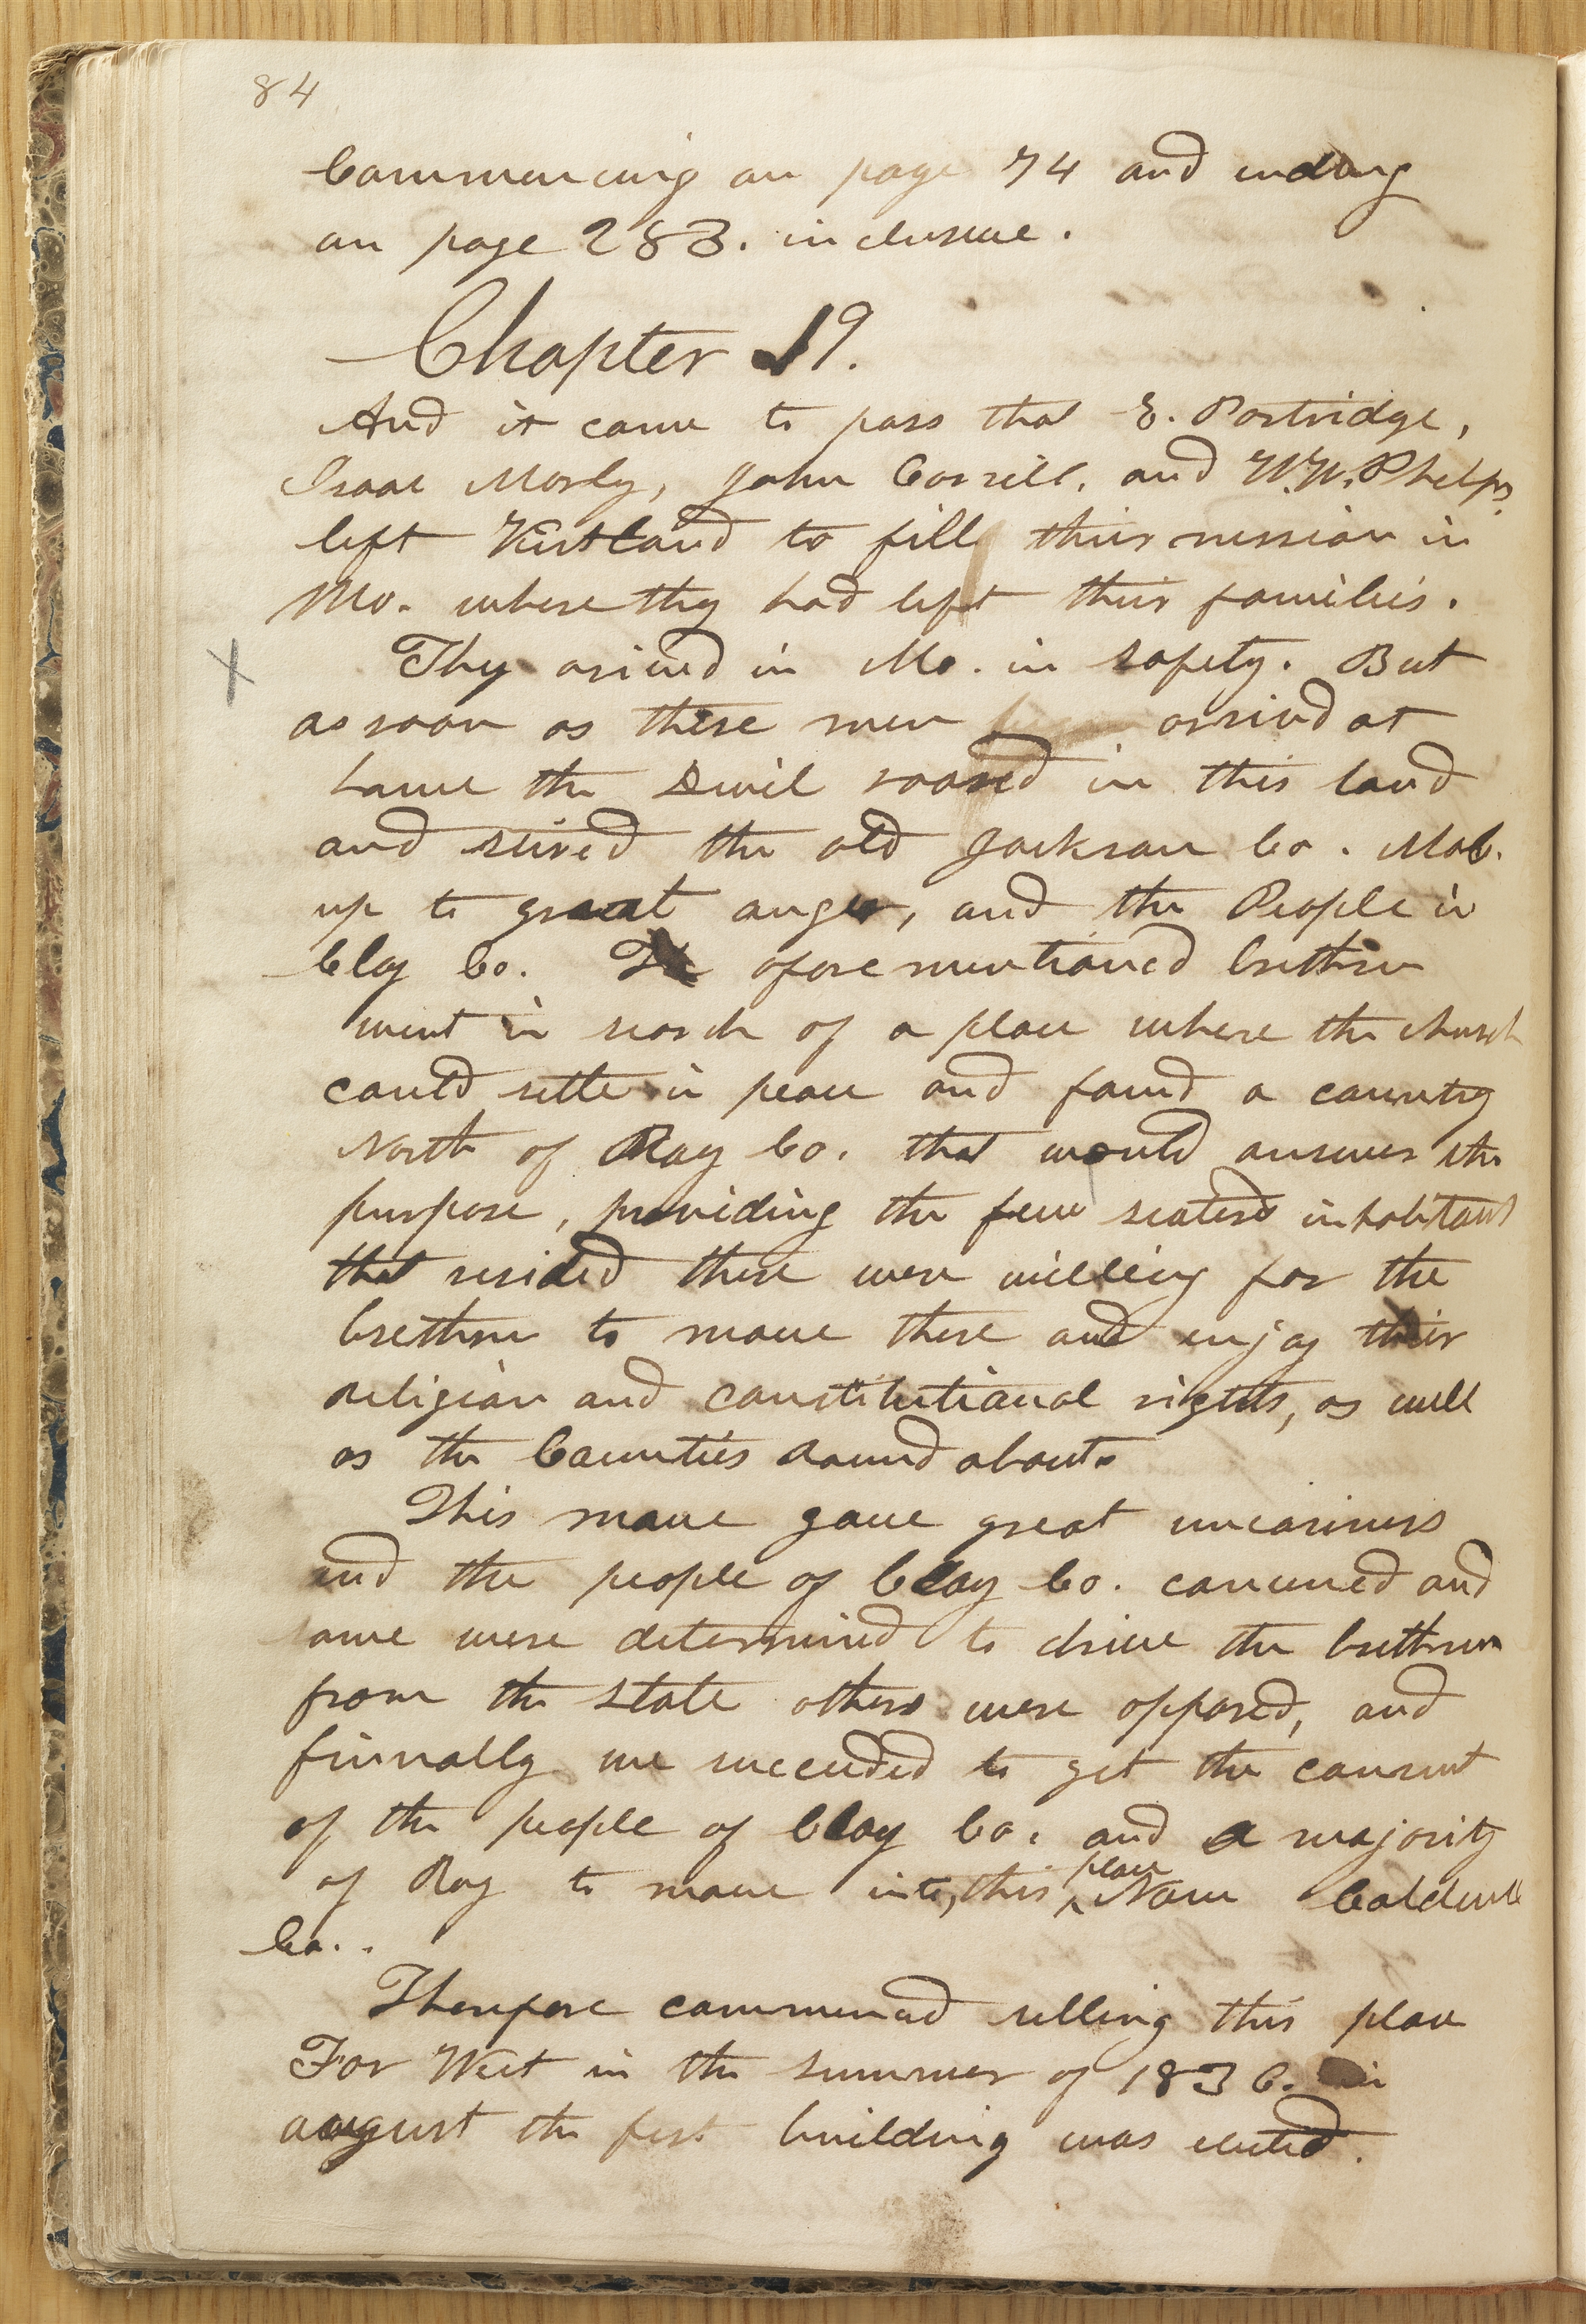 84
Commencing on page 74 and ending
on page 283. inclusive.
Chapter 19.
And it came to pass that E. Partridge,
Isaac Morly, John Corrill, and W.W. Phelps
left Kirtland to fill their mission in
Mo. where they had left their families.
X They arived in Mo. in safety. But
as soon as these men arrived at
home the Devil roared in this land
and stired the old Jackson Co. Mob.
up to great anger, and the People in
Clay Co. The aforementioned brethren
went in search of a place where the church
could settle in peace and found a country
North of Ray Co. that would answer the
purpose, providing the few scatered inhabitants
that resided there were willing for the
brethren to move there and enjoy their
religion and constitutional rights, as well
as the Counties round about.
This move gave great uneasiness
and the people of Clay Co. convened and
some were determined to drive the brethren
from the state others were opposed, and
finnally we succeded to get the consent
of the people of Clay Co. and a majority
of Ray to move into, this ^place Now Caldwell
Co..
Therefore commenced selling this place
Far West in the summer of 1836. in
august the first building was erected.